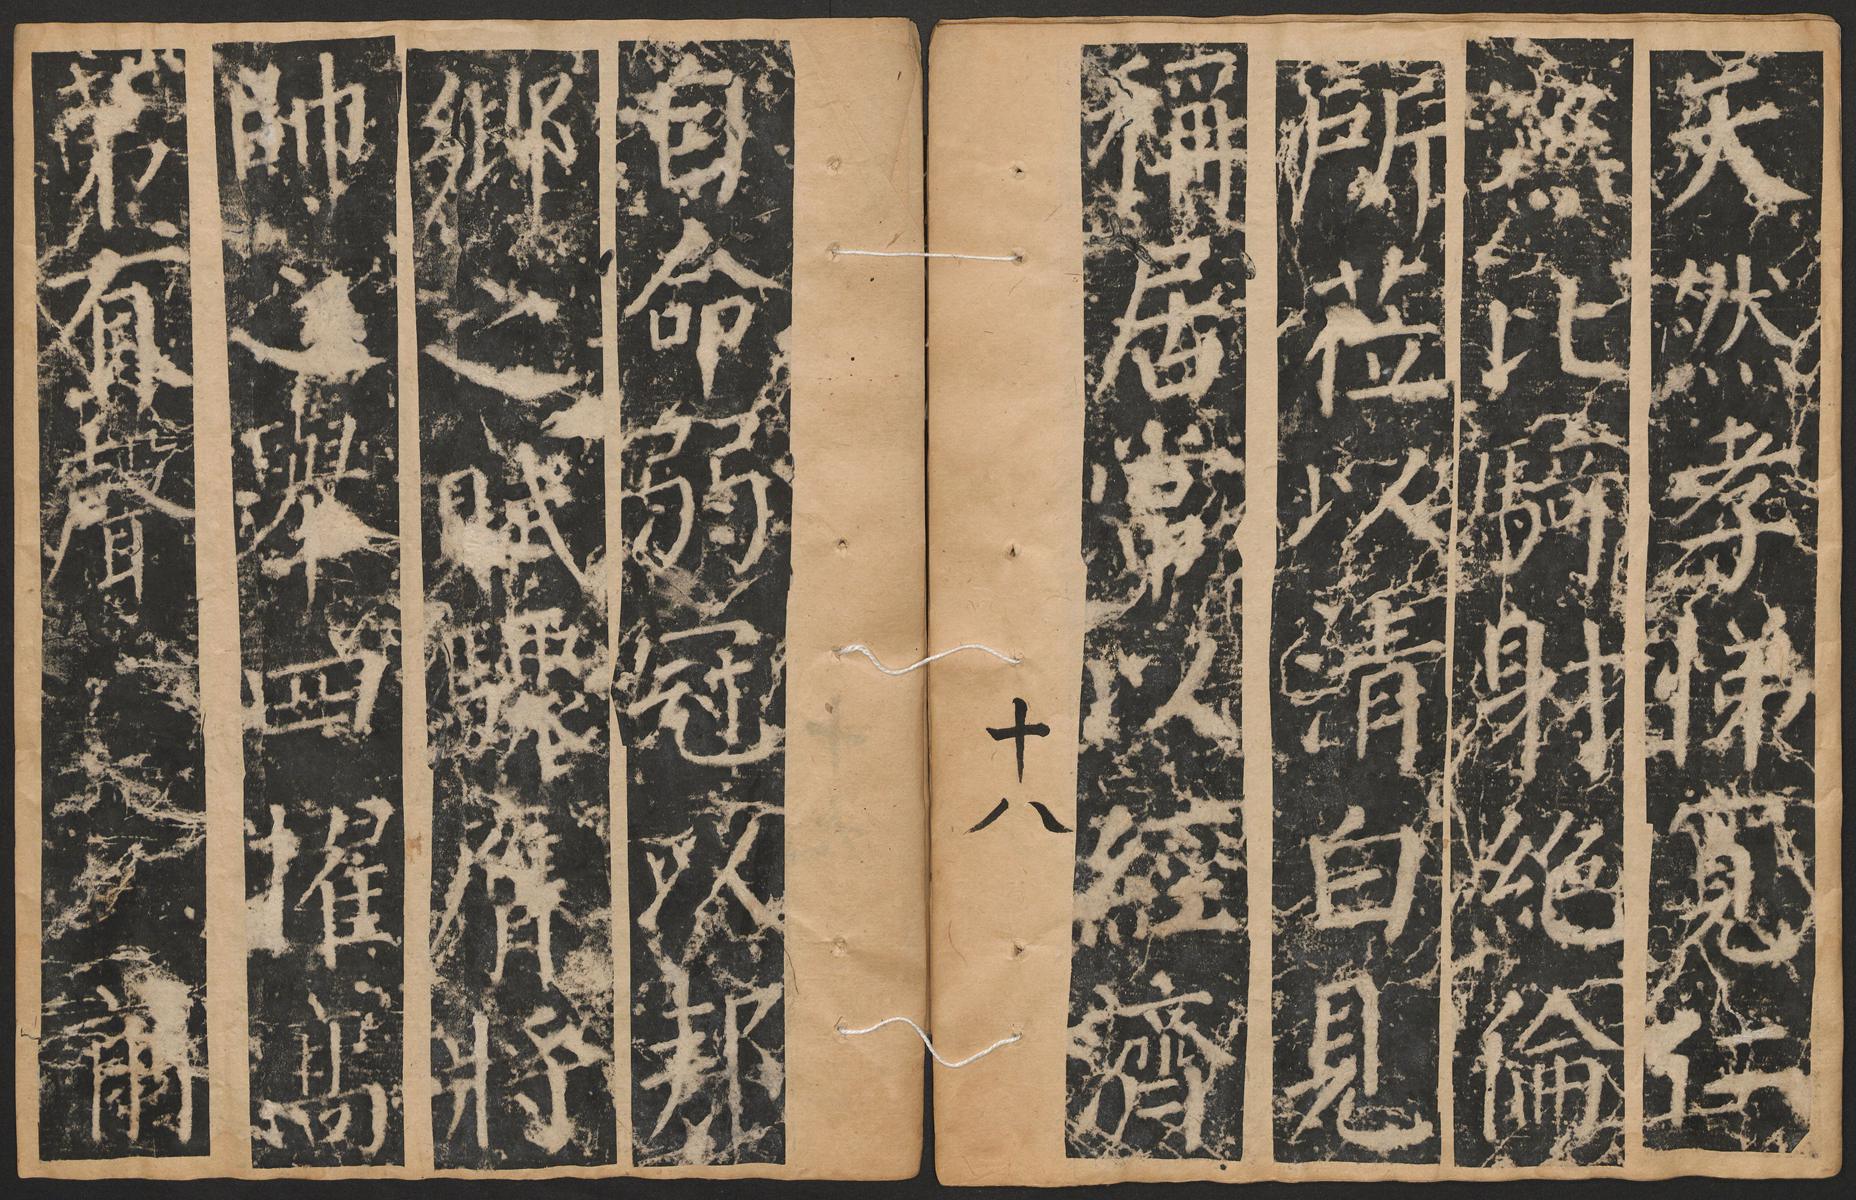 天然孝悌寬仁
無比騎射絕倫
所莅以清白見
稱居常以經濟
十八
自命弱冠以邦
鄉之賦驟膺將
帥之舉四擢高
第有聲